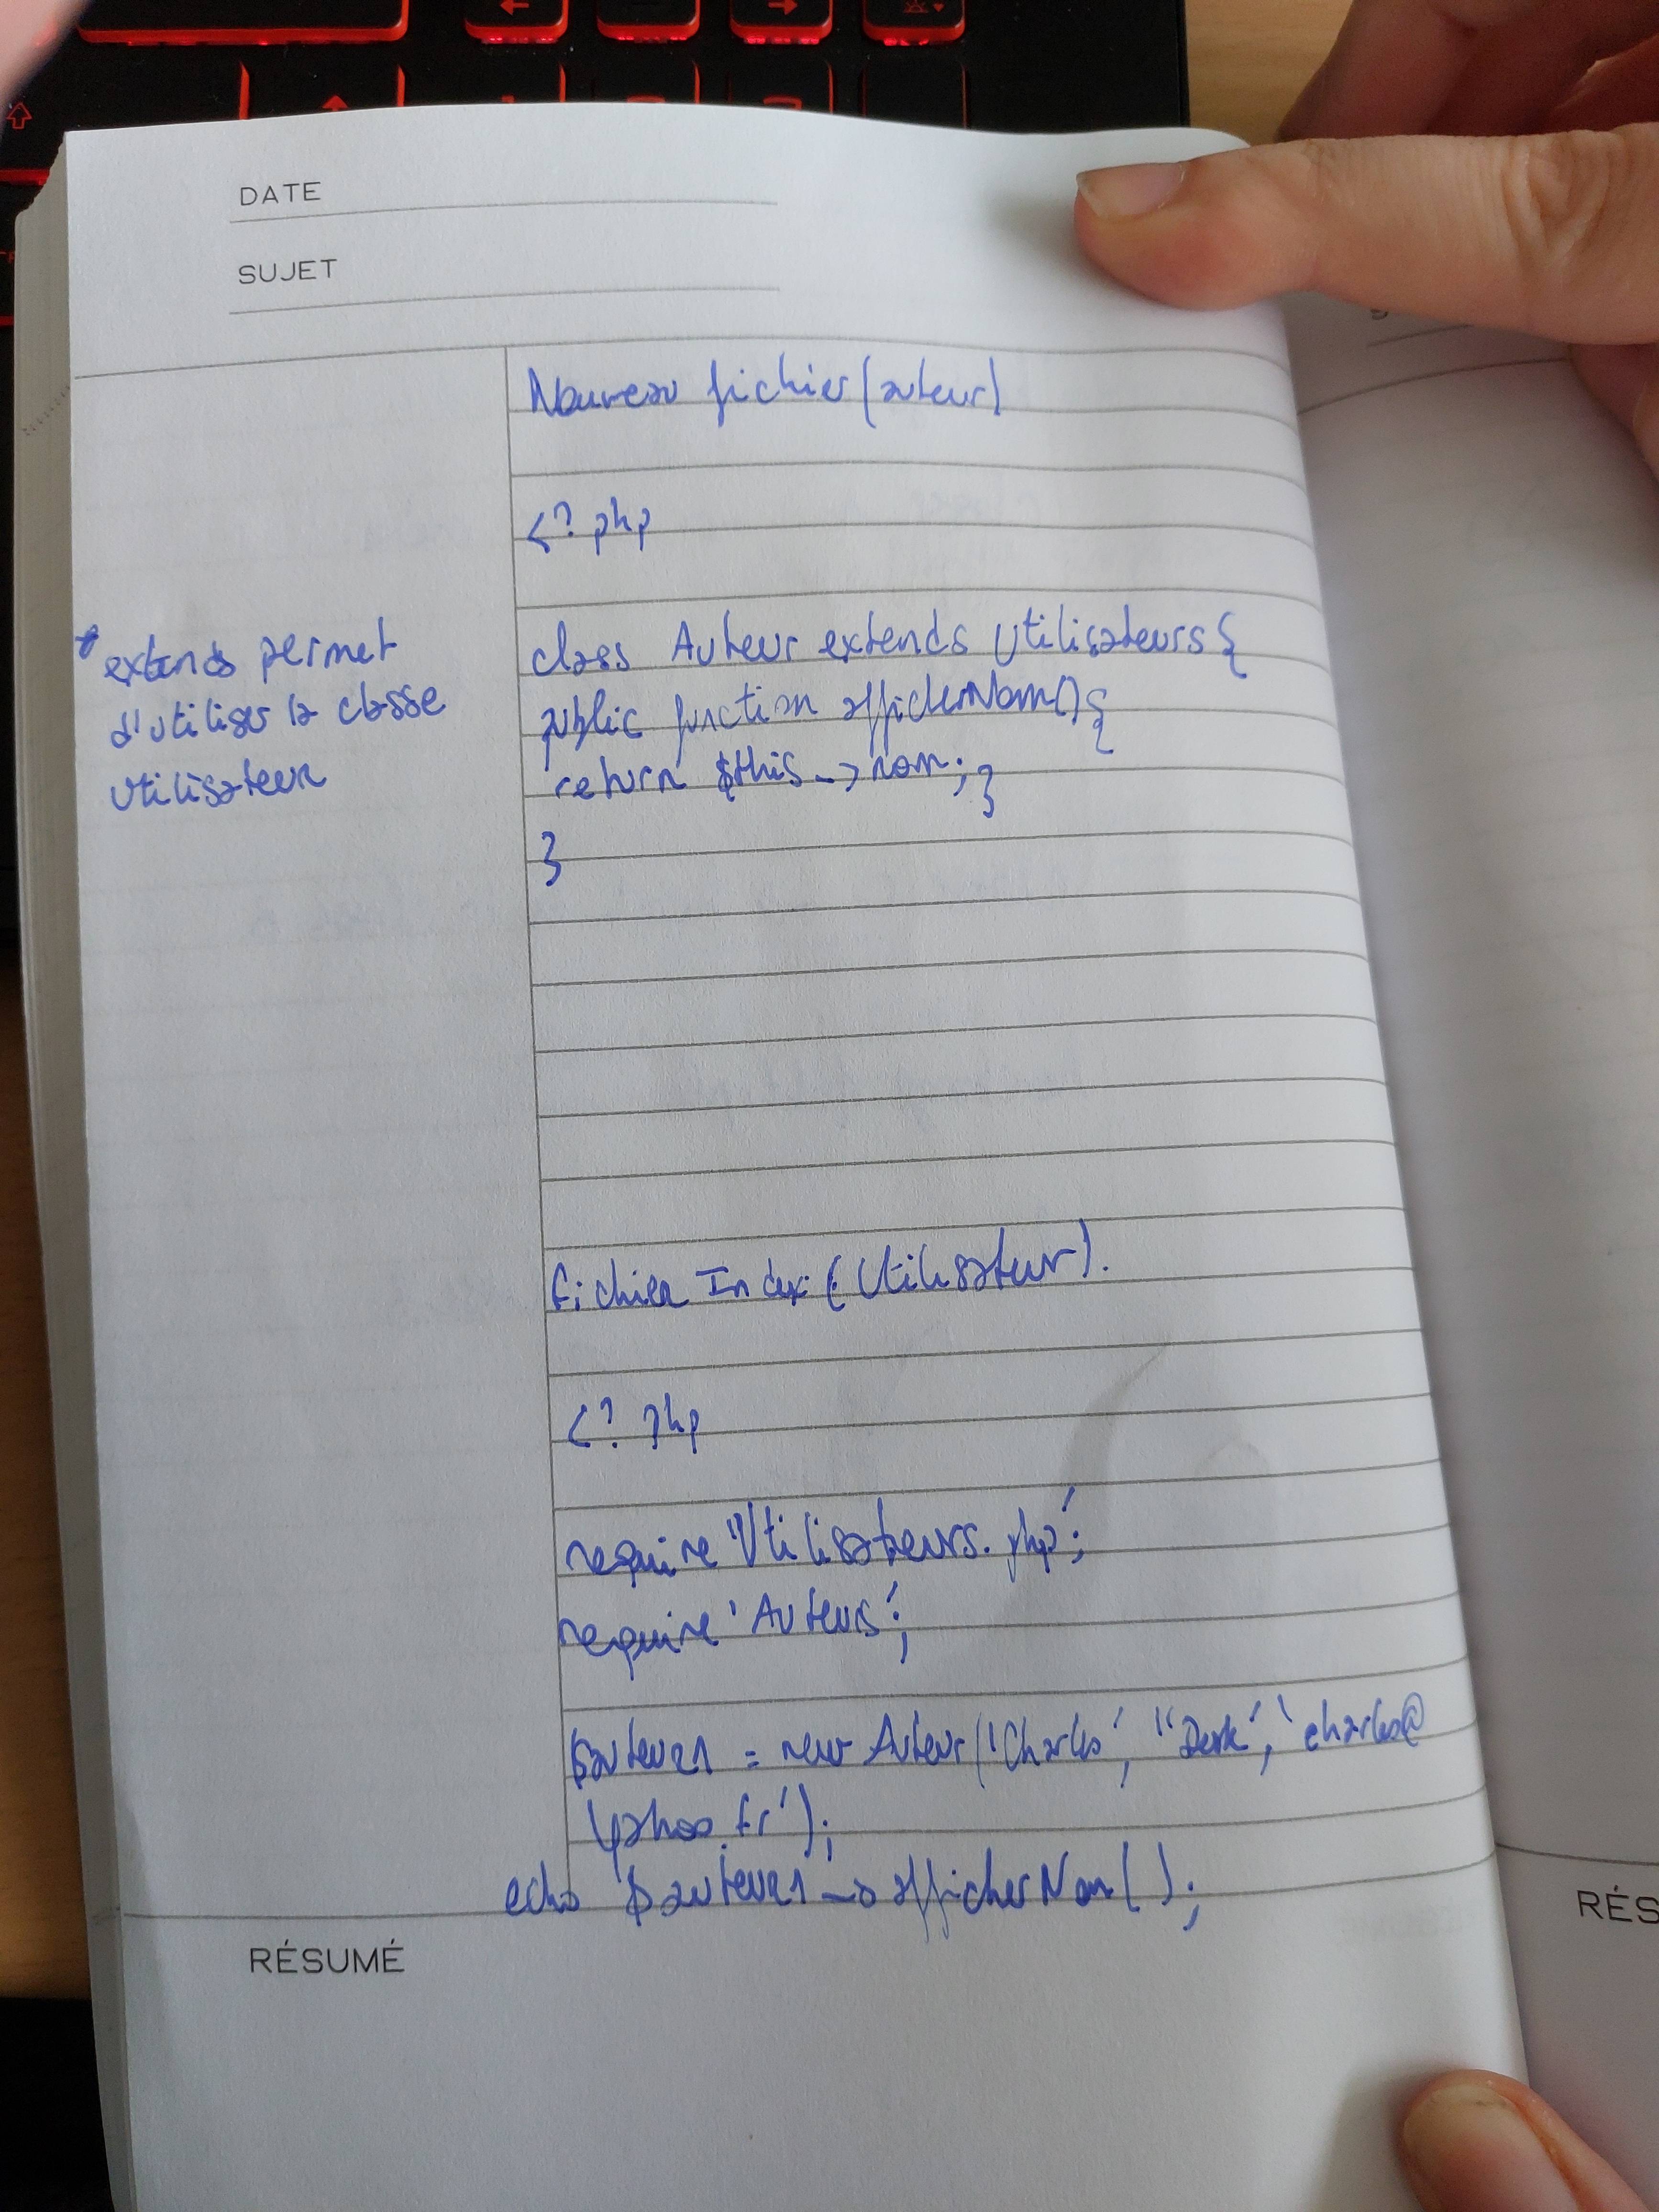 DATE
SUJET
Nouveau fichier (auteur)
<? php
* extends permet
d'utiliser la classe
utilisateur
class Auteur extends Utilisateurs {
public function afficherNom() {
return $this -> nom; }
}
fichier Index (Utilisateur).
<? php
require 'Utilisateurs.php';
require 'Auteurs';
$auteur1 = new Auteur('Charles', ''Derk', 'charles@
yahoo.fr');
echo $auteur1 -> afficherNom( );
RÉSUMÉ
RÉS